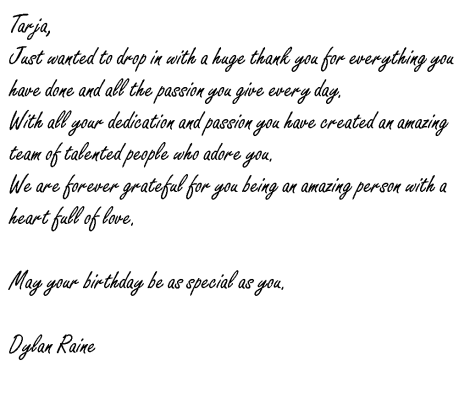 Tarja,
Just wanted to drop in with a huge thank you for everything you
have done and all the passion you give every day.
With all your dedication and passion you have created an amazing
team of talented people who adore you.
We are forever grateful for you being an amazing person with a
heart full of love.
May your birthday be as special as you.
Dylan Raine